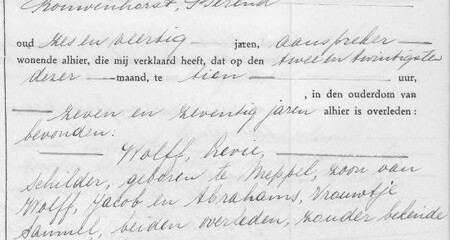 Kouwenhorst, Berend
oud zes en veertig jaren, aanspreker
wonende alhier, die mij verklaard heeft, dat op den twee en twintigsten
dezer maand, te tien uur,
, in den ouderdom van
zeven en zeventig jaren alhier is overleden:
bevonden:
Wolff, Levie,
schilder, geboren te Meppel, zoon van
Wolff, Jacob en Abrahams, Vrouwtje
Sammel, beiden overleden, zonder bekende